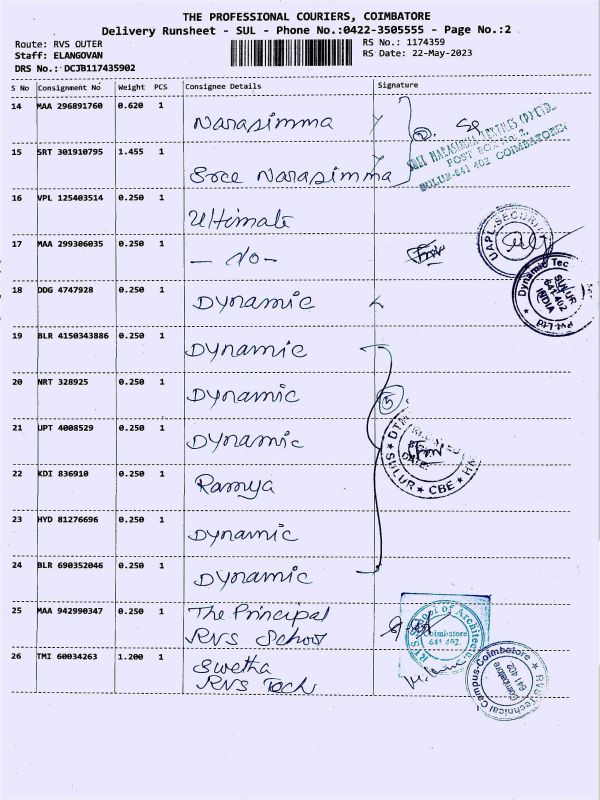 THE PROFESSIONAL COURIERS, COIMBATORE
Delivery Runsheet - SUL - Phone No.:0422-3505555 - Page No.:2
Route: RVS OUTER
RS No.: 1174359
Staff: ELANGOVAN
RS Date: 22-May-2023
DRS No.: DCJB117435902
S No Consignment No Weight PCS Consignee Details Signature
14 MAA 296891760 0.620 1 Narasimma
SRI NARASIMHA TEXTILES (P) LTD.
POST BOX No. 2,
SULUR-641 402 COIMBATORE
15 SRT 301910795 1.455 1 Sree Narasimma
16 VPL 125403514 0.250 1 Ultimate
UAPL-SECURITY
17 MAA 299306035 0.250 1 - No -
18 DDG 4747928 0.250 1 Dynamic
Dynamic Tec Pvt Ltd
SULUR
641 402
INDIA
19 BLR 4150343886 0.250 1 Dynamic
20 NRT 328925 0.250 1 Dynamic
5
21 UPT 4008529 0.250 1 Dynamic
DATE:
SULUR ★ CBE ★
22 KDI 836910 0.250 1 Ramya
23 HYD 81276696 0.250 1 Dynamic
24 BLR 690352046 0.250 1 Dynamic
25 MAA 942990347 0.250 1 The Principal
RVS School
RVS School of Architecture
Coimbatore
641 402
26 TMI 60034263 1.200 1 Swetha
RVS Tech
RVS Technical Campus-Coimbatore
Coimbatore
641 402